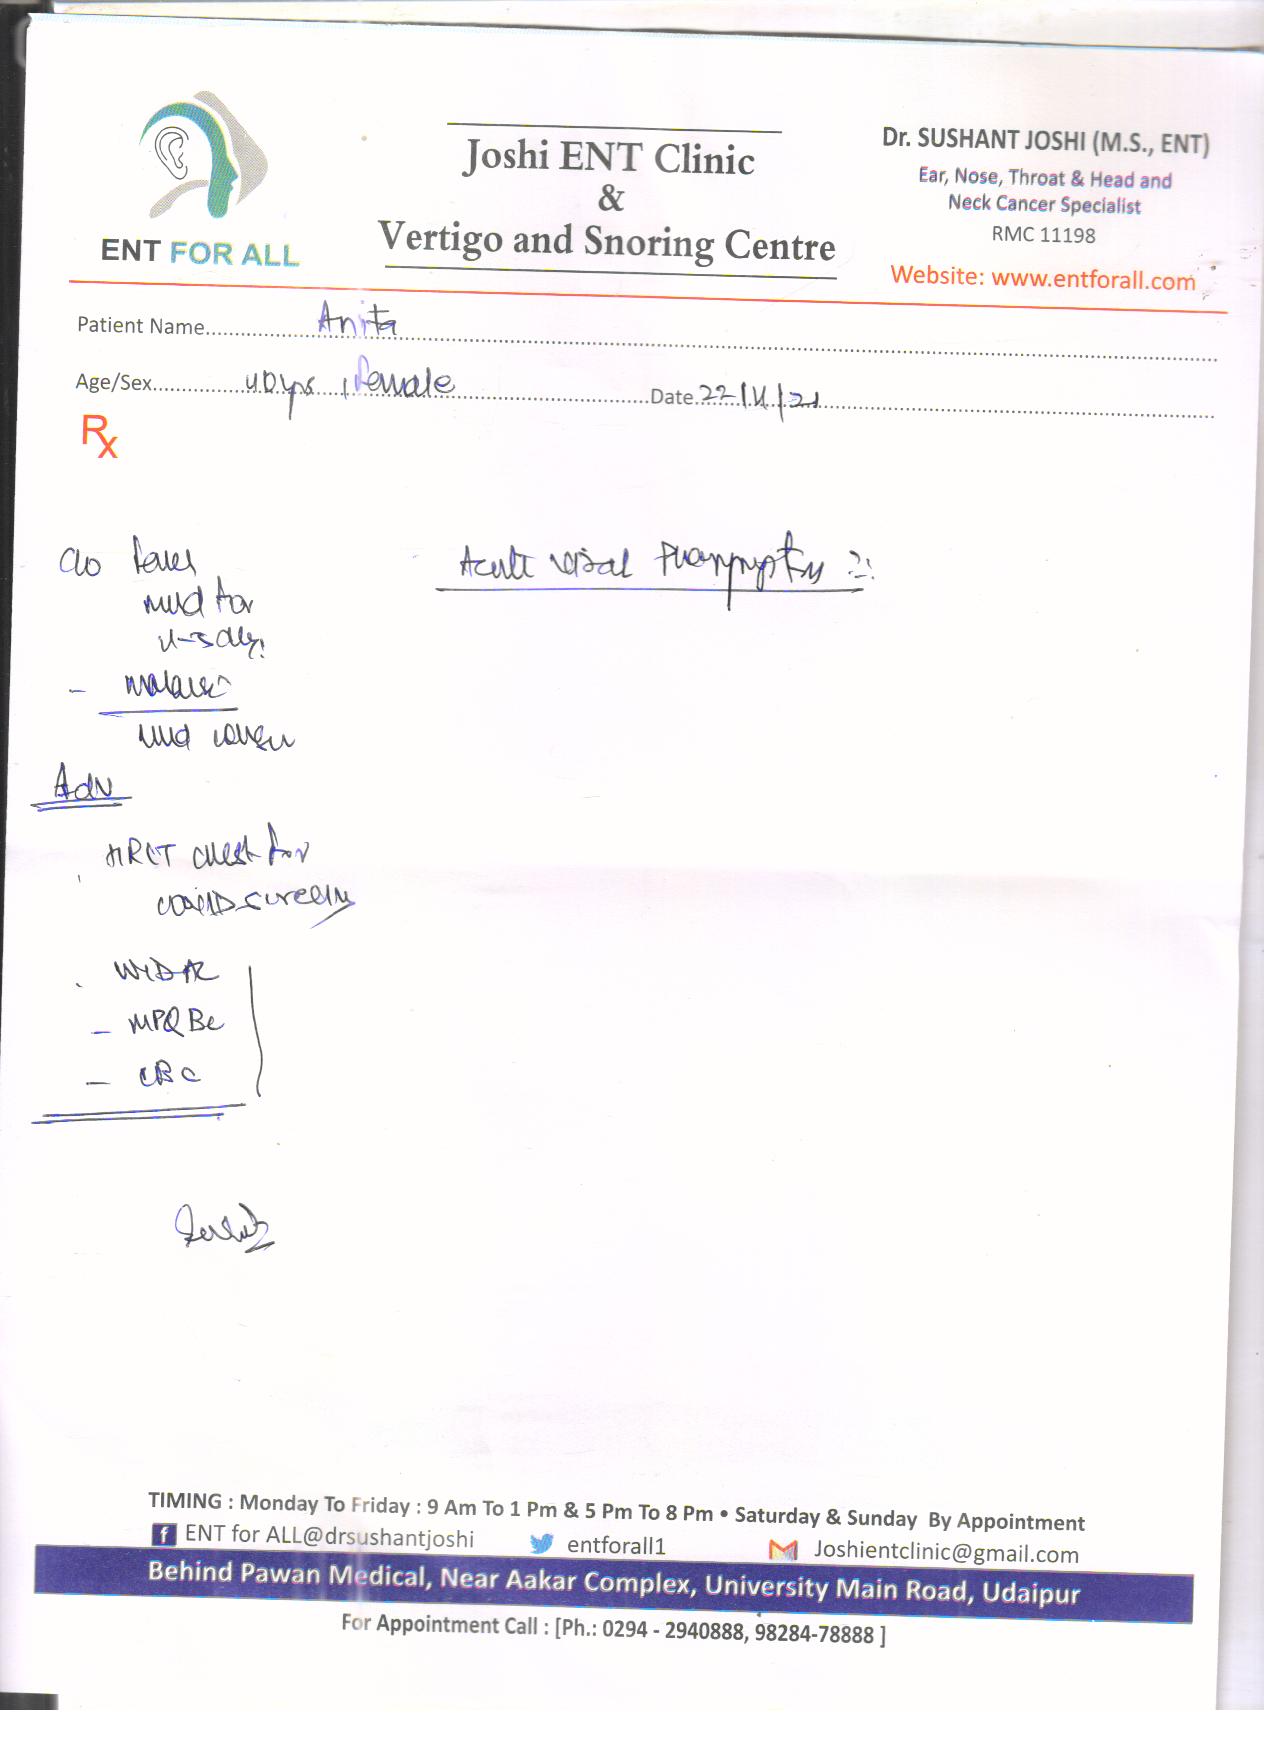 ENT FOR ALL
Joshi ENT Clinic
&
Vertigo and Snoring Centre
Dr. SUSHANT JOSHI (M.S., ENT)
Ear, Nose, Throat & Head and
Neck Cancer Specialist
RMC 11198
Website: www.entforall.com
Patient Name Anita
Age/Sex 40yrs, female Date 22/4/21
Rx
C/o fever
mild for
4-5 days
- malaise
mild cough
Acute viral Pharyngitis
Adv
HRCT chest for
covid screening
WIDAL
- MPQBC
- CBC
TIMING : Monday To Friday : 9 Am To 1 Pm & 5 Pm To 8 Pm • Saturday & Sunday By Appointment
f ENT for ALL@drsushantjoshi entforall1 Joshientclinic@gmail.com
Behind Pawan Medical, Near Aakar Complex, University Main Road, Udaipur
For Appointment Call : [Ph.: 0294 - 2940888, 98284-78888 ]